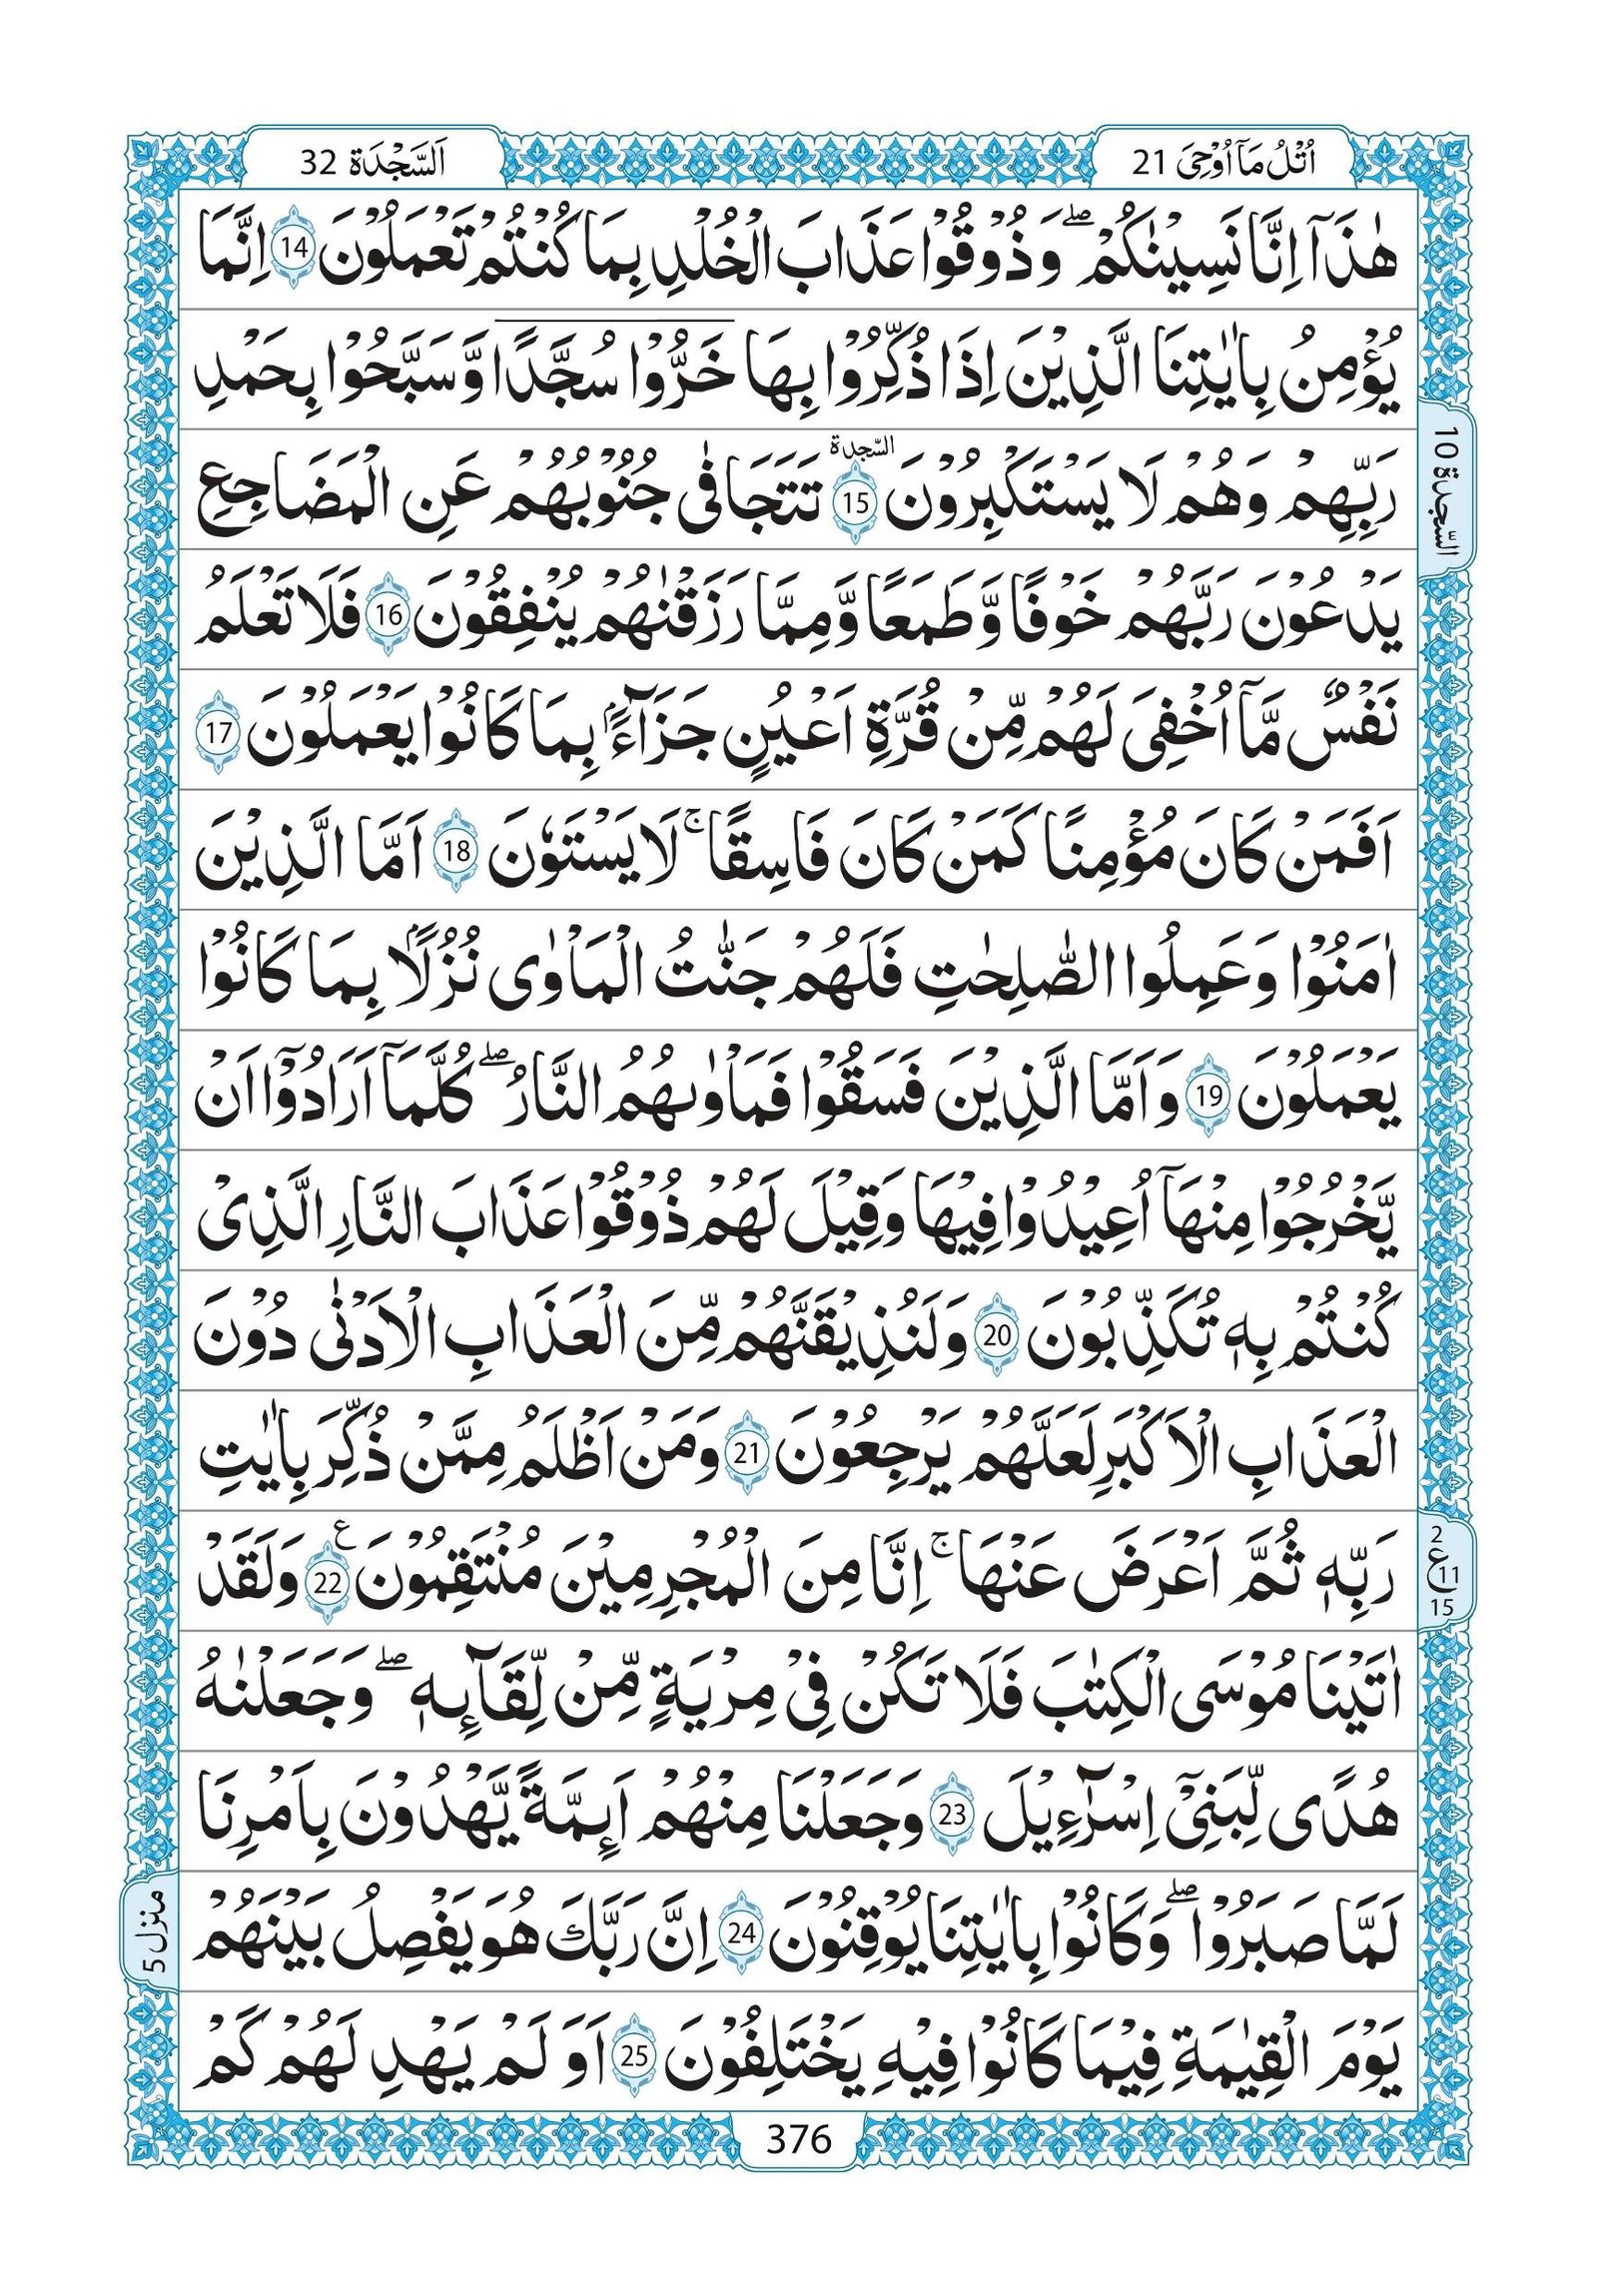 اُتْلُ مَاۤ اُوْحِیَ 21
اَلسَّجْدَة 32
هٰذَاۤ اِنَّا نَسِیْنٰكُمْ ۖ وَ ذُوْقُوْا عَذَابَ الْخُلْدِ بِمَا كُنْتُمْ تَعْمَلُوْنَ 14 اِنَّمَا
یُؤْمِنُ بِاٰیٰتِنَا الَّذِیْنَ اِذَا ذُكِّرُوْا بِهَا خَرُّوْا سُجَّدًا وَّ سَبَّحُوْا بِحَمْدِ
رَبِّهِمْ وَ هُمْ لَا یَسْتَكْبِرُوْنَ 15 السّجدة تَتَجَافٰی جُنُوْبُهُمْ عَنِ الْمَضَاجِعِ
السّجدة 10
یَدْعُوْنَ رَبَّهُمْ خَوْفًا وَّ طَمَعًا وَّ مِمَّا رَزَقْنٰهُمْ یُنْفِقُوْنَ 16 فَلَا تَعْلَمُ
نَفْسٌ مَّاۤ اُخْفِیَ لَهُمْ مِّنْ قُرَّةِ اَعْیُنٍ جَزَآءًۢ بِمَا كَانُوْا یَعْمَلُوْنَ 17
اَفَمَنْ كَانَ مُؤْمِنًا كَمَنْ كَانَ فَاسِقًا ۚ لَا یَسْتَوٗنَ 18 اَمَّا الَّذِیْنَ
اٰمَنُوْا وَ عَمِلُوا الصّٰلِحٰتِ فَلَهُمْ جَنّٰتُ الْمَاْوٰی نُزُلًۢا بِمَا كَانُوْا
یَعْمَلُوْنَ 19 وَ اَمَّا الَّذِیْنَ فَسَقُوْا فَمَاْوٰىهُمُ النَّارُ ۖ كُلَّمَاۤ اَرَادُوْۤا اَنْ
یَّخْرُجُوْا مِنْهَاۤ اُعِیْدُوْا فِیْهَا وَ قِیْلَ لَهُمْ ذُوْقُوْا عَذَابَ النَّارِ الَّذِیْ
كُنْتُمْ بِهٖ تُكَذِّبُوْنَ 20 وَ لَنُذِیْقَنَّهُمْ مِّنَ الْعَذَابِ الْاَدْنٰی دُوْنَ
الْعَذَابِ الْاَكْبَرِ لَعَلَّهُمْ یَرْجِعُوْنَ 21 وَ مَنْ اَظْلَمُ مِمَّنْ ذُكِّرَ بِاٰیٰتِ
رَبِّهٖ ثُمَّ اَعْرَضَ عَنْهَا ۚ اِنَّا مِنَ الْمُجْرِمِیْنَ مُنْتَقِمُوْنَ ع 22 وَ لَقَدْ
2
ع 11
15
اٰتَیْنَا مُوْسَی الْكِتٰبَ فَلَا تَكُنْ فِیْ مِرْیَةٍ مِّنْ لِّقَآىِٕهٖ ۖ وَ جَعَلْنٰهُ
هُدًی لِّبَنِیْۤ اِسْرَآءِیْلَ 23 وَ جَعَلْنَا مِنْهُمْ اَىِٕمَّةً یَّهْدُوْنَ بِاَمْرِنَا
لَمَّا صَبَرُوْا ۖ وَ كَانُوْا بِاٰیٰتِنَا یُوْقِنُوْنَ 24 اِنَّ رَبَّكَ هُوَ یَفْصِلُ بَیْنَهُمْ
منزل 5
یَوْمَ الْقِیٰمَةِ فِیْمَا كَانُوْا فِیْهِ یَخْتَلِفُوْنَ 25 اَوَ لَمْ یَهْدِ لَهُمْ كَمْ
376